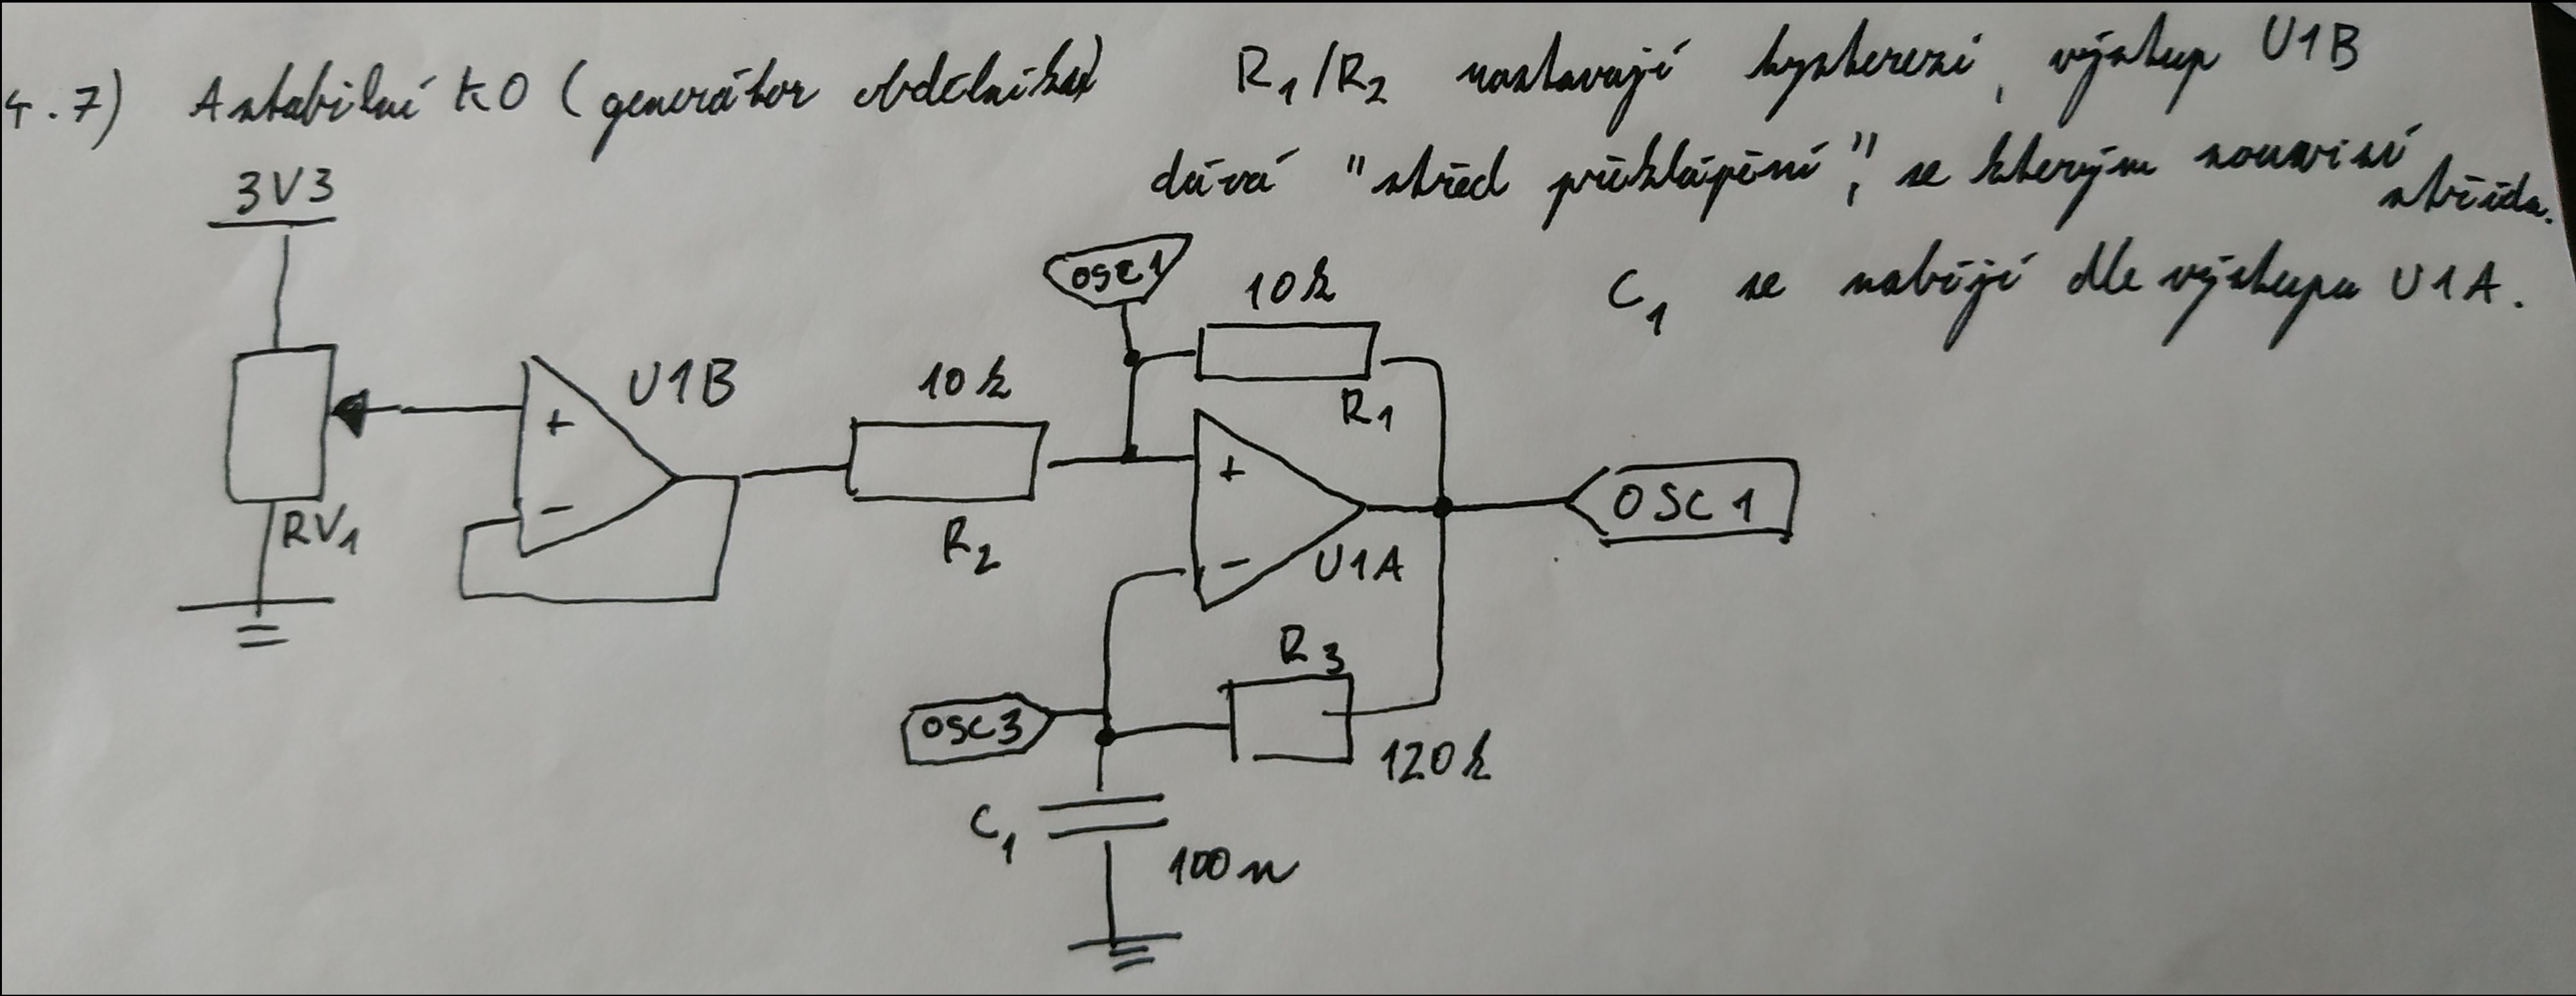 4.7) Astabilní KO (generátor obdélníka)
R1/R2 nastavují hysterezi, výstup U1B
dává "střed překlápění", se kterým souvisí
střída.
C1 se nabíjí dle výstupu U1A.
3V3
RV1
+
-
U1B
10k
R2
OSC1
10k
R1
+
-
U1A
OSC 1
R3
120k
OSC3
C1
100n